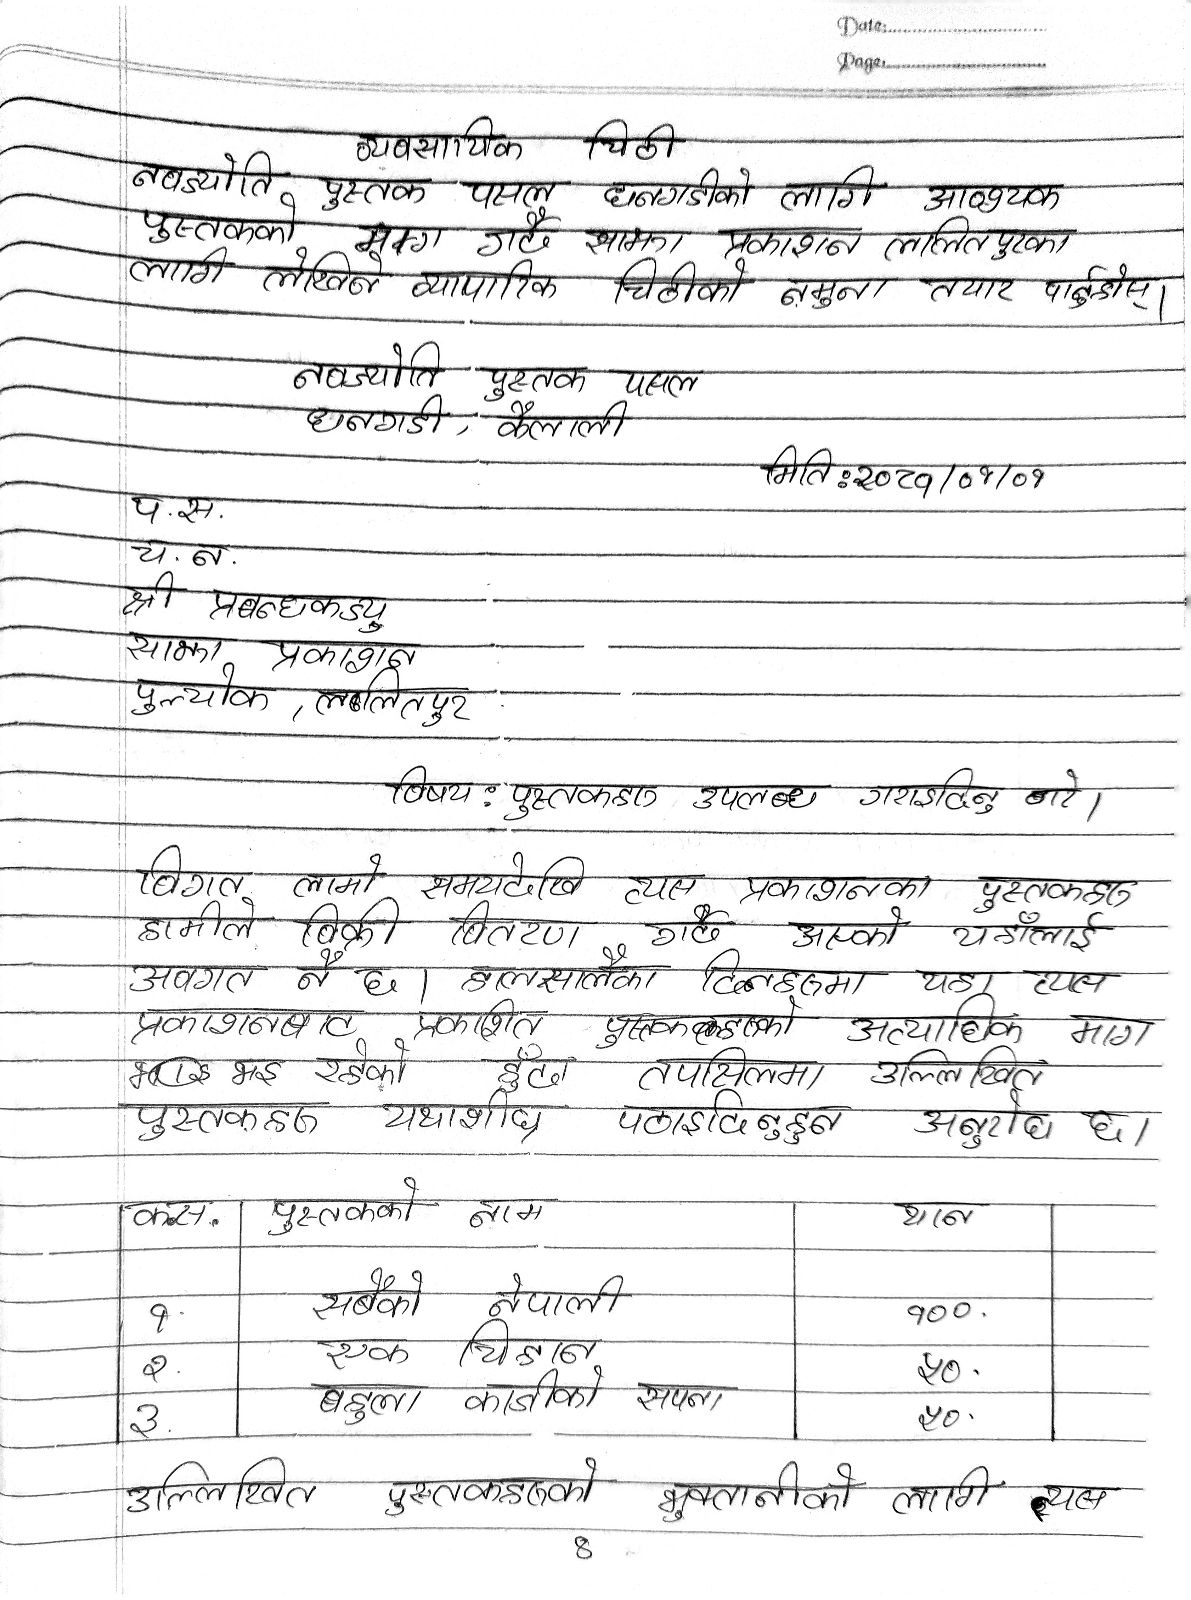 Date:
Page:
व्यवसायिक चिठी
नवज्योति पुस्तक पसल धनगढीको लागि आवश्यक
पुस्तकको माग गर्दै साझा प्रकाशन ललितपुरका
लागि लेखिने व्यापारिक चिठीको नमुना तयार पार्नुहोस्।
नवज्योति पुस्तक पसल
धनगढी, कैलाली
मिति: २०८१/०१/०१
प.स.
च.न.
श्री प्रबन्धकज्यु
साझा प्रकाशन
पुल्चोक, ललितपुर
विषय: पुस्तकहरु उपलब्ध गराइदिनु बारे।
विगत लामो समयदेखि त्यस प्रकाशनका पुस्तकहरु
हामीले बिक्री वितरण गर्दै आएको यहाँलाई
अवगत नै छ। हालसालैका दिनहरुमा यहा त्यस
प्रकाशनबाट प्रकाशित पुस्तकहरुको अत्याधिक माग
भइ रहेको हुँदा तपसिलमा उल्लिखित
पुस्तकहरु यथाशीघ्र पठाइदिनुहुन अनुरोध छ।
क.स. पुस्तकको नाम थान
१. सबैको नेपाली १००.
२. एक चिहान ५०.
३. बहुला काजीको सपना ५०.
उल्लिखित पुस्तकहरुको भुक्तानीको लागि त्यस
8